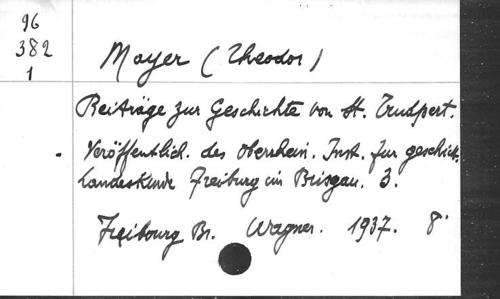 96
382
1
Mayer (Theodor)
Beiträge zur Geschichte von St. Trudpert.
Veröffentlich. des oberrhein. Inst. fur geschichtl.
Landeskunde Freiburg im Brisgau. 3.
Freibourg Br. Wagner. 1937. 8°